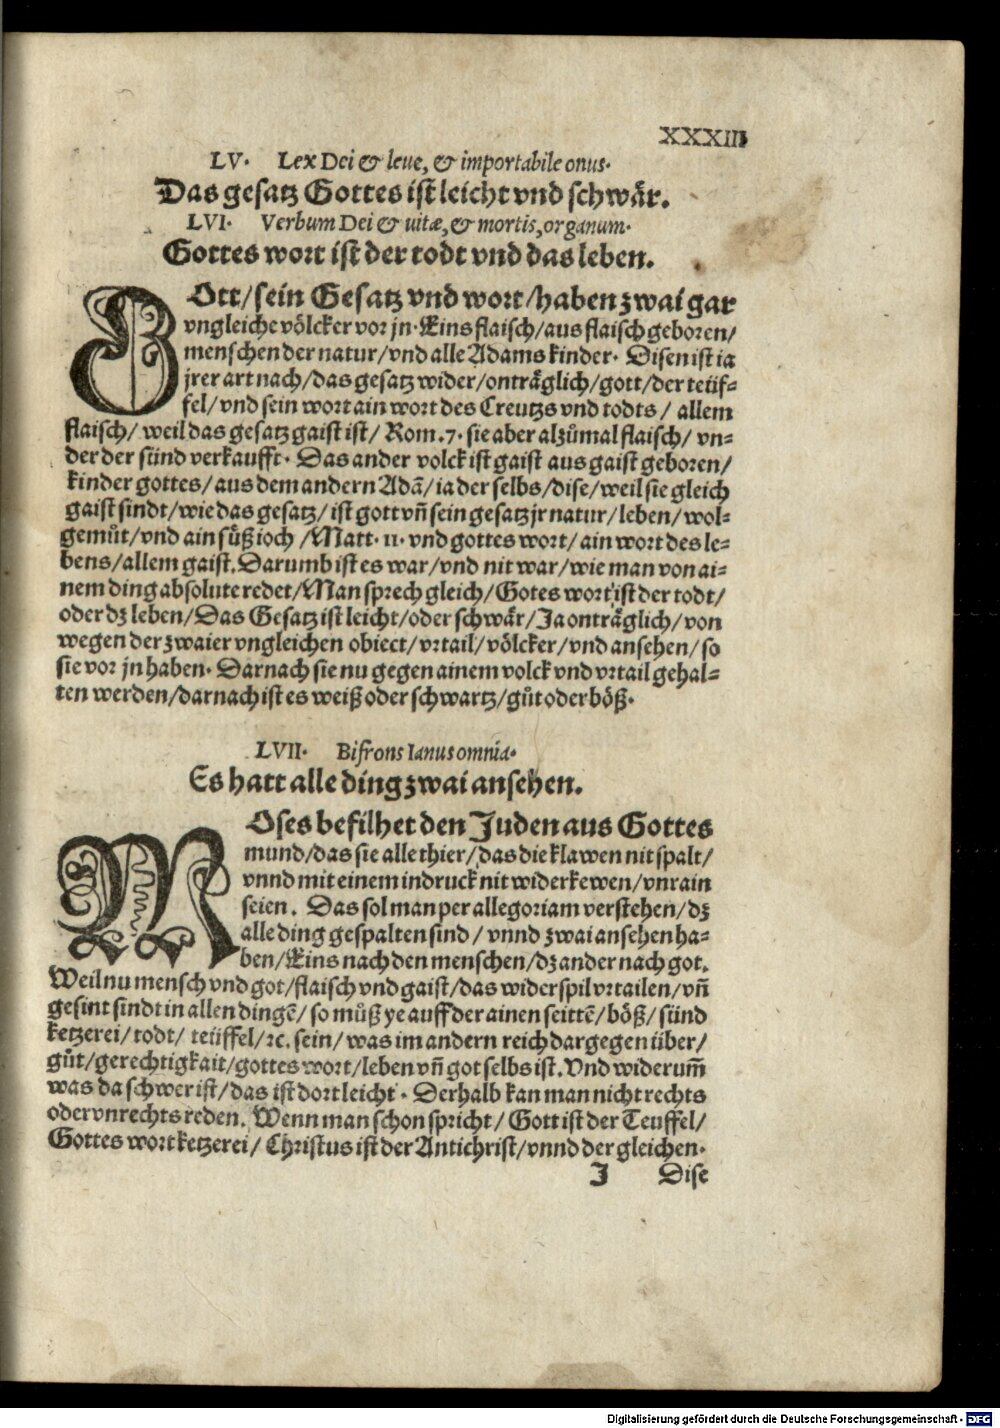 XXXIII
LV. Lex Dei & leue, & importabile onus.
Das gesatz Gottes ist leicht vnd schwår.
LVI. Verbum Dei & uitæ, & mortis, organum.
Gottes wort ist der todt vnd das leben.
GOtt/ sein Gesatz vnd wort/ haben zwai gar
vngleiche völcker vor jn. Eins flaisch/ aus flaisch geboren/
menschen der natur/ vnd alle Adams kinder. Disen ist ia
jrer art nach/ das gesatz wider/ onträglich/ gott/ der teüf⸗
fel/ vnd sein wort ain wort des Creutzs vnd todts/ allem
flaisch/ weil das gesatz gaist ist/ Rom. 7. sie aber alzůmal flaisch/ vn⸗
der der sünd verkaufft. Das ander volck ist gaist aus gaist geboren/
kinder gottes/ aus dem andern Adã/ ia der selbs/ dise/ weil sie gleich
gaist sindt/ wie das gesatz/ ist gott vñ sein gesatz jr natur/ leben/ wol⸗
gemůt/ vnd ain süß ioch/ Matt. 11. vnd gottes wort/ ain wort des le⸗
bens/ allem gaist. Darumb ist es war/ vnd nit war/ wie man von ai⸗
nem ding absolute redet/ Man sprech gleich/ Gotes wort ist der todt/
oder dz leben/ Das Gesatz ist leicht/ oder schwår/ Ja onträglich/ von
wegen der zwaier vngleichen obiect/ vrtail/ völcker/ vnd ansehen/ so
sie vor jn haben. Darnach sie nu gegen ainem volck vnd vrtail gehal⸗
ten werden/ darnach ist es weiß oder schwartz/ gůt oder böß.
LVII. Bifrons Ianus omnia.
Es hatt alle ding zwai ansehen.
MOses befilhet den Juden aus Gottes
mund/ das sie alle thier/ das die klawen nit spalt/
vnnd mit einem indruck nit widerkewen/ vnrain
seien. Das sol man per allegoriam verstehen/ dz
alle ding gespalten sind/ vnnd zwai ansehen ha⸗
ben/ Eins nach den menschen/ dz ander nach got.
Weil nu mensch vnd got/ flaisch vnd gaist/ das widerspil vrtailen/ vñ
gesint sindt in allen dingẽ/ so můß ye auff der ainen seittẽ/ böß/ sünd
ketzerei/ todt/ teüffel/ ꝛc. sein/ was im andern reich dargegen über/
gůt/ gerechtigkait/ gottes wort/ leben vñ got selbs ist. Vnd widerum̃
was da schwer ist/ das ist dort leicht. Derhalb kan man nicht rechts
oder vnrechts reden. Wenn man schon spricht/ Gott ist der Teuffel/
Gottes wort ketzerei/ Christus ist der Antichrist/ vnnd der gleichen.
J Dise
Digitalisierung gefördert durch die Deutsche Forschungsgemeinschaft - DFG